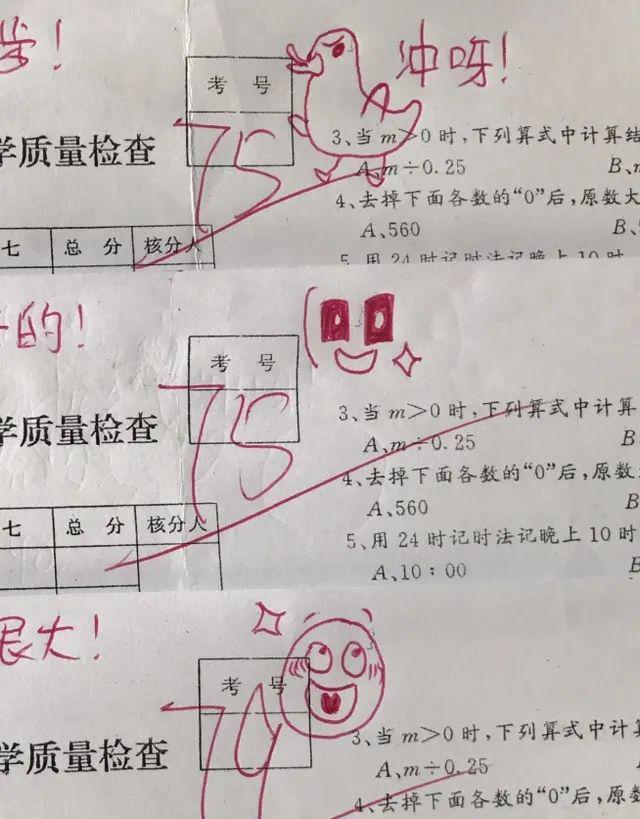 学！
冲呀！
考 号
75
学质量检查
3、当 m＞0 时，下列算式中计算结
A、m÷0.25
B、
4、去掉下面各数的“0”后，原数大
A、560
B、
七 总 分 核分人
5、用 24 时记时法记晚上 10 时
的！
考 号
75
学质量检查
3、当 m＞0 时，下列算式中计算
A、m÷0.25
B
4、去掉下面各数的“0”后，原数
A、560
B
七 总 分 核分人
5、用 24 时记时法记晚上 10 时
A、10：00
B
很大！
考 号
学质量检查
3、当 m＞0 时，下列算式中计算
A、m÷0.25
4、去掉下面各数的“0”后，原数